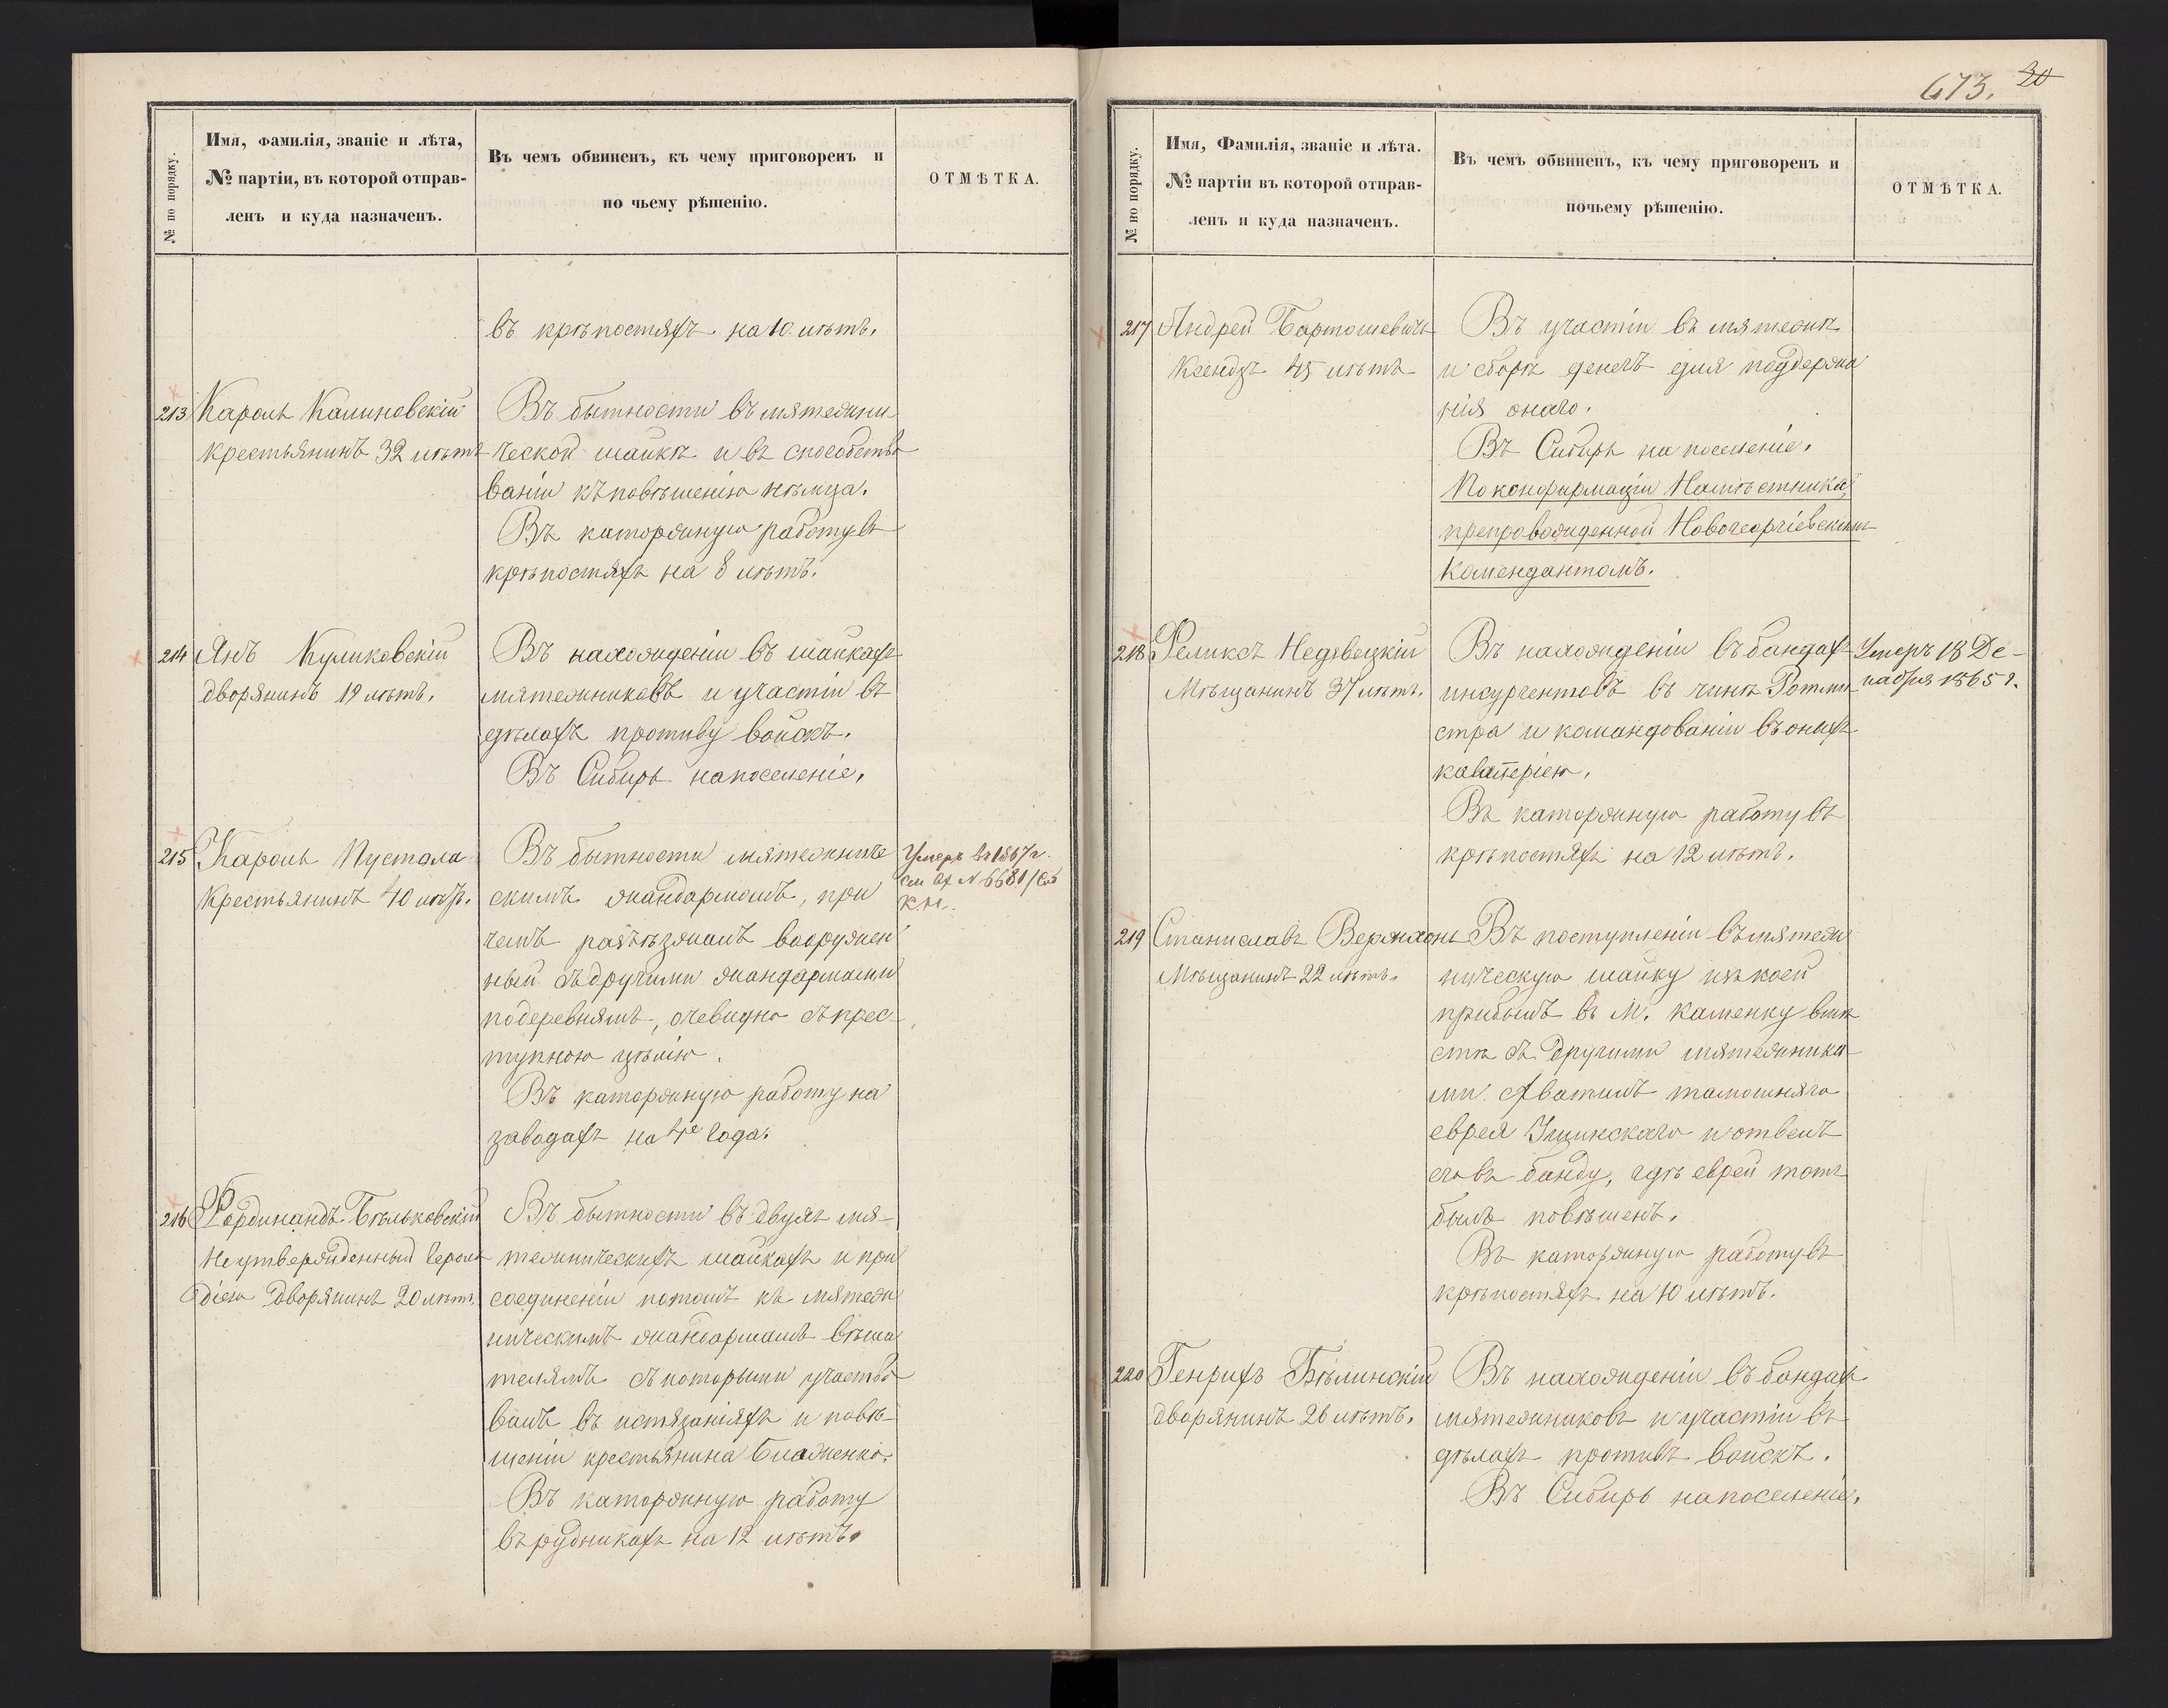 № по порядку.
Имя, фамилія, званіе и лѣта,
№ партіи, въ которой отправ-
ленъ и куда назначенъ.
Въ чемъ обвиненъ, къ чему приговоренъ и
по чьему рѣшенію.
ОТМѢТКА.
въ крѣпостяхъ на 10 лѣтъ.
213 Кароль Калиновскій
крестьянинъ 32 лѣтъ
Въ бытности въ мятежни
ческой шайкѣ и въ способство
ваніи къ повѣшенію нѣмца.
Въ каторжную работу въ
крѣпостяхъ на 8 лѣтъ.
214 Янъ Куликовскій
дворянинъ 19 лѣтъ.
Въ нахожденіи въ шайкахъ
мятежниковъ и участіи въ
дѣлахъ противу войскъ.
Въ Сибирь на поселеніе.
215 Кароль Пустола
Крестьянинъ 40 лѣтъ.
Въ бытности мятежниче
скимъ жандармомъ, при
чемъ разъѣзжалъ вооружен
ный съ другими жандармами
по деревнямъ, очевидно съ прес-
тупною цѣлію.
Въ каторжную работу на
заводахъ на 4ре года.
Умеръ въ 1867 г.
см вх № 6681/
К.Н.
216 Фердинандъ Бѣльковскій
Неутвержденный Героль
діею Дворянинъ 20 лѣтъ.
Въ бытности въ двухъ мя-
тежническихъ шайкахъ и при
соединеніи потомъ къ мятеж
ническимъ жандармамъ вѣша
телямъ съ которыми участво
валъ въ истязаніяхъ и повѣ-
шеніи крестьянина Блаженко.
Въ каторжную работу
въ рудникахъ на 12 лѣтъ.
673. 20
№ по порядку.
Имя, Фамилія, званіе и лѣта.
№ партіи въ которой отправ-
ленъ и куда назначенъ.
Въ чемъ обвиненъ, къ чему приговоренъ и
почьему рѣшенію.
ОТМѢТКА.
217 Андрей Бартошевичъ
Ксендзъ 45 лѣтъ
Въ участіи въ мятежѣ
и сборѣ денегъ для поддержа
нія онаго.
Въ Сибирь на поселеніе.
По конфирмаціи Намѣстника,
препровожденной Новогеоргіевскимъ
Комендантомъ.
218 Феликсъ Недзвецкій
Мѣщанинъ 37 лѣтъ.
Въ нахожденіи въ бандахъ
инсургентовъ въ чинѣ Ротми
стра и командованіи въ оныхъ
кавалеріею.
Въ каторжную работу въ
крѣпостяхъ на 12 лѣтъ.
Умеръ 18 Де-
кабря 1865 г.
219 Станиславъ Вержхонь
Мѣщанинъ 22 лѣтъ.
Въ поступленіи въ мятеж
ническую шайку изъ коей
прибылъ въ М. Каменку вмѣ
стѣ съ другими мятежника
ми схватилъ тамошняго
еврея Ущинскаго и отвелъ
его въ банду, гдѣ еврей тотъ
былъ повѣшенъ.
Въ каторжную работу въ
крѣпостяхъ на 10 лѣтъ.
220 Генрихъ Бѣлинскій
дворянинъ 26 лѣтъ.
Въ нахожденіи въ бандахъ
мятежниковъ и участіи въ
дѣлахъ противъ войскъ.
Въ Сибирь на поселеніе.